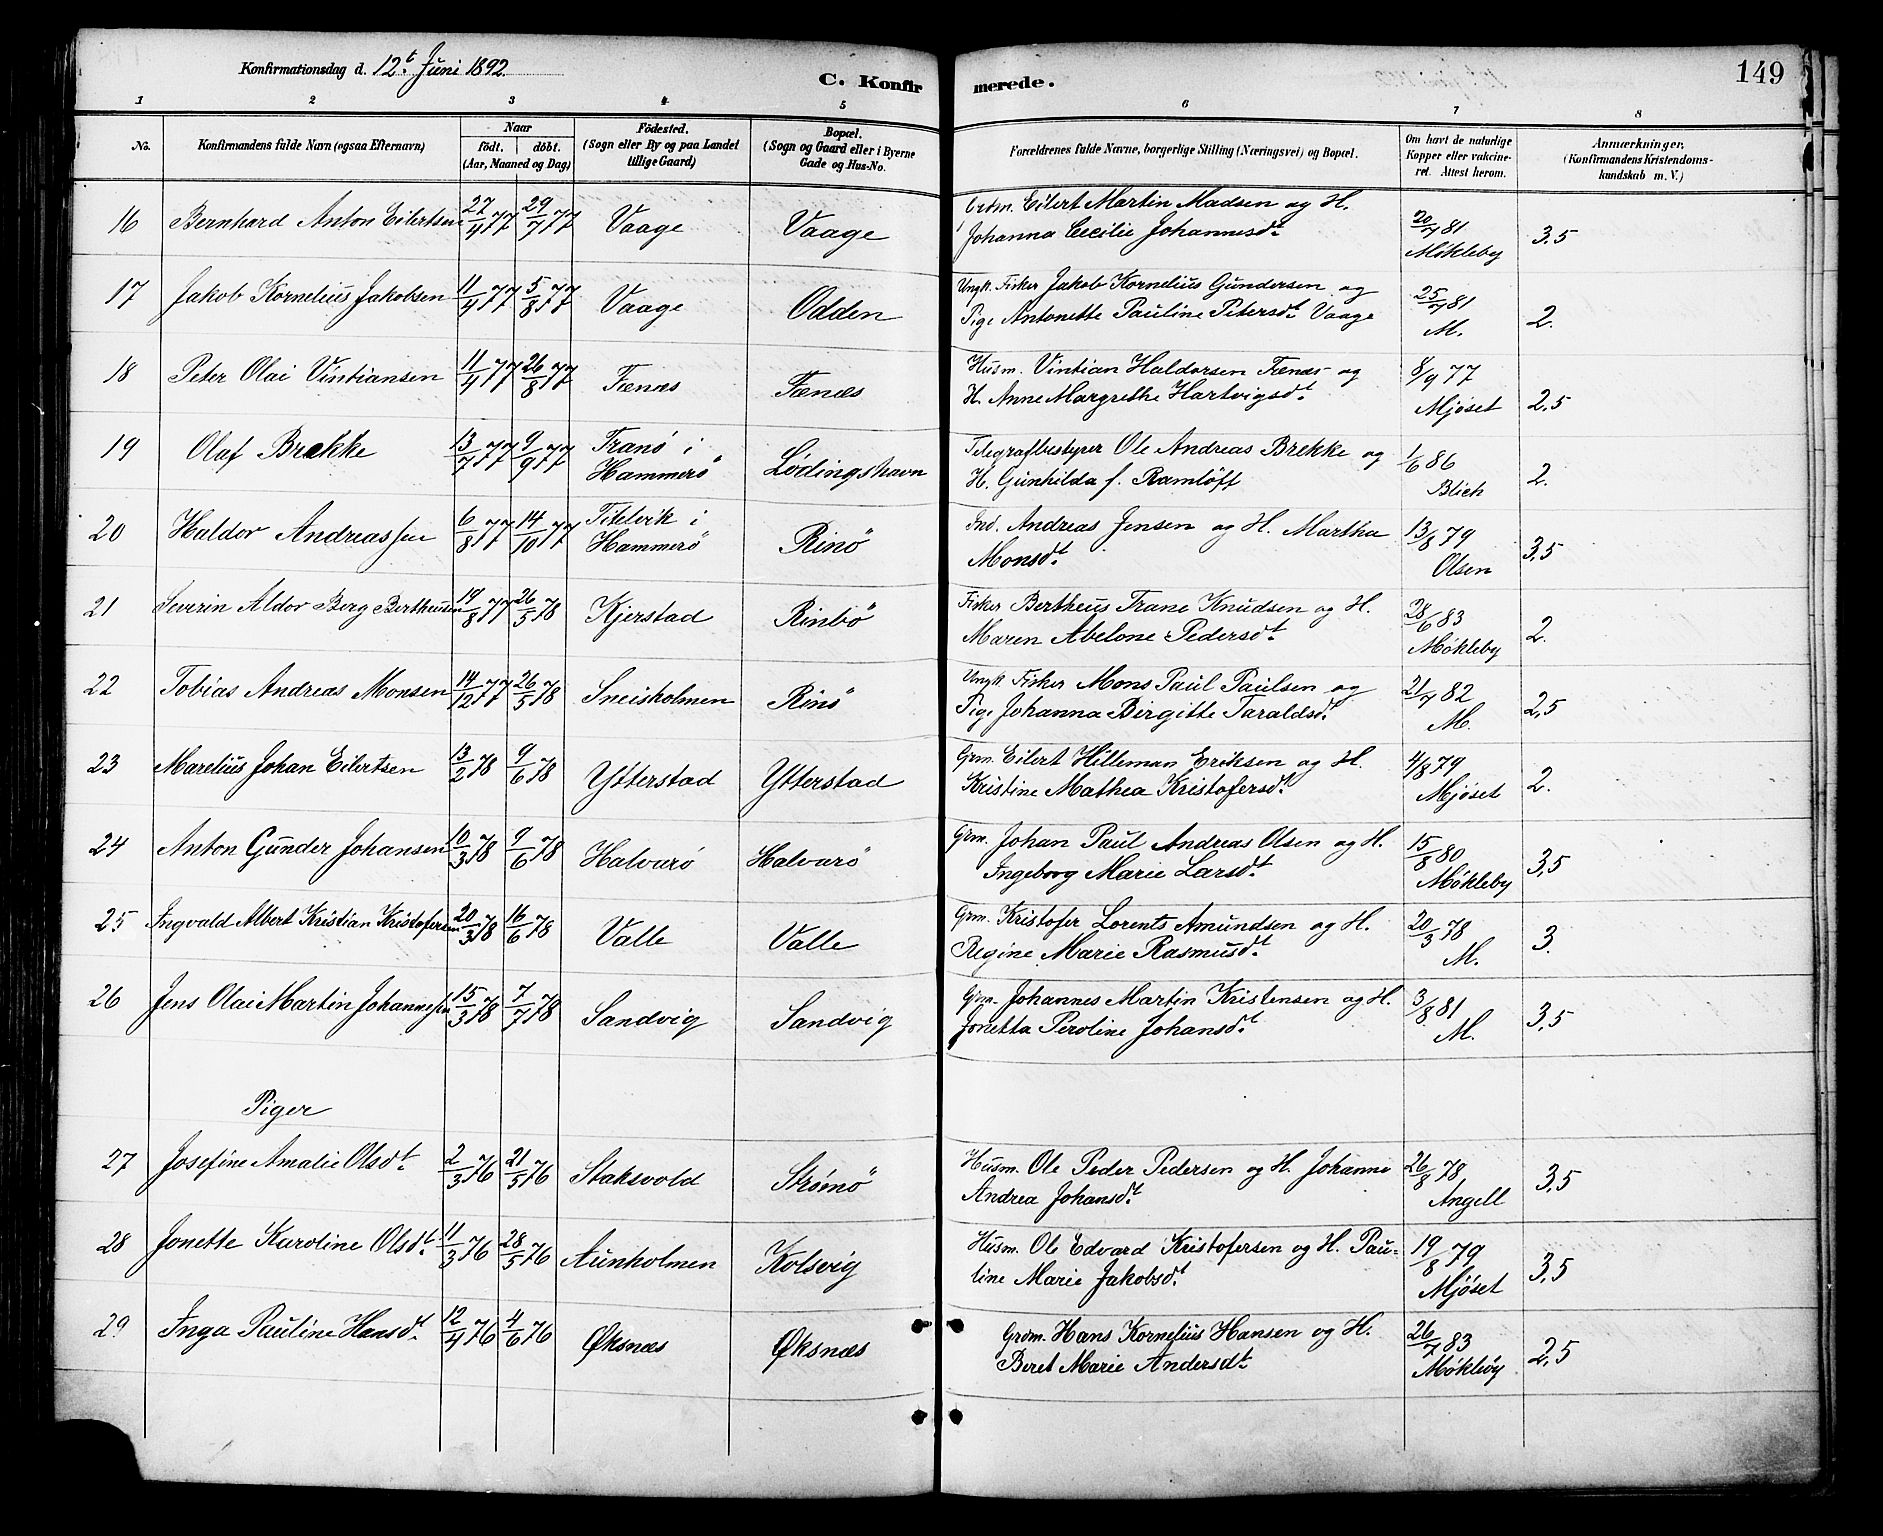 Konfirmationsdag d. 12t Juni 1892.
C. Konfirmerede.
149
1 2 3 4 5 6 7 8
No.
Konfirmandens fulde Navn (ogsaa Efternavn)
Naar
födt. döbt.
(Aar, Maaned og Dag)
Födested.
(Sogn eller By og paa Landet
tillige Gaard)
Bopæl.
(Sogn og Gaard eller i Byerne
Gade og Hus-No.
Forældrenes fulde Navne, borgerlige Stilling (Næringsvei) og Bopæl.
Om havt de naturlige
Kopper eller vakcine-
ret. Attest herom.
Anmærkninger.
(Konfirmandens Kristendoms-
kundskab m. V.)
16 Bernhard Anton Eilertsen 27/4 77 29/7 77 Vaage Vaage Eilert Martin Madsen og H. 20/7 81 3,5
Johanna Cecilie Johannesdt. Møkleby
17 Jakob Kornelius Jakobsen 11/4 77 5/8 77 Vaage Odden Ungk. Fisker Jakob Kornelius Gundersen og 25/7 81 2.
Pige Antonette Pauline Petersdt. Vaage M.
18 Peter Olai Vintiansen 11/4 77 26/8 77 Fænæs Fænæs Husm. Vintian Haldorsen Fænæs og 8/9 77 2,5
H. Anne Margrethe Hartvigsdt. Mjøset
19 Olaf Brekke 13/7 77 9/9 77 Tranö i Lödingshavn Telegrafbestyrer Ole Andreas Brekke og 1/6 86 2.
Hammerö H. Gunhilda f. Ramlöff Blich
20 Haldor Andreassen 6/8 77 14/10 77 Titelvik i Rinö Ind. Andreas Jensen og H. Martha 13/8 79 3,5
Hammerö Monsdt. Olsen
21 Severin Aldor Berg Bertheussen 19/8 77 26/5 78 Kjerstad Rinbö Fisker Bertheus Trane Knudsen og H. 28/6 83 2.
Maren Abelone Pedersdt. Møkleby
22 Tobias Andreas Monsen 14/12 77 26/5 78 Sneisholmen Rinö Ungk. Fisker Mons Paul Paulsen og 21/7 82 2,5
Pige Johanna Birgitte Taraldsdt. M.
23 Marelius Johan Eilertsen 13/2 78 9/6 78 Ytterstad Ytterstad Grm. Eilert Hilleman Eriksen og H. 4/8 79 2.
Kristine Mathea Kristofersdt. Mjöset
24 Anton Gunder Johansen 10/3 78 9/6 78 Halvarö Halvarö Grm. Johan Paul Andreas Olsen og H. 15/8 80 3,5
Ingeborg Marie Larsdt. Møkleby
25 Ingvald Albert Kristian Kristofersen 20/3 78 16/6 78 Valle Valle Grm. Kristofer Lorents Amundsen og H. 20/3 78 3.
Regine Marie Rasmusdt. M.
26 Jens Olai Martin Johannessen 15/3 78 7/7 78 Sandvig Sandvig Grm. Johannes Martin Kristensen og H. 3/8 81 3,5
Jonetta Peroline Johansdt. M.
Piger
27 Josefine Amalie Olsdt. 2/3 76 21/5 76 Staksvold Strömö Husm. Ole Peder Pedersen og H. Johanne 26/8 78 3,5
Andrea Johansdt. Angell
28 Jonette Karoline Olsdt. 11/3 76 28/5 76 Aunholmen Kolsvig Husm. Ole Edvard Kristofersen og H. Pau- 19/8 79 3,5
line Marie Jakobsdt. Mjöset
29 Inga Pauline Hansdt. 12/4 76 4/6 76 Øksnæs Øksnæs Grdm. Hans Kornelius Hansen og H. 26/7 83 2,5
Beret Marie Andersdt. Møkleby